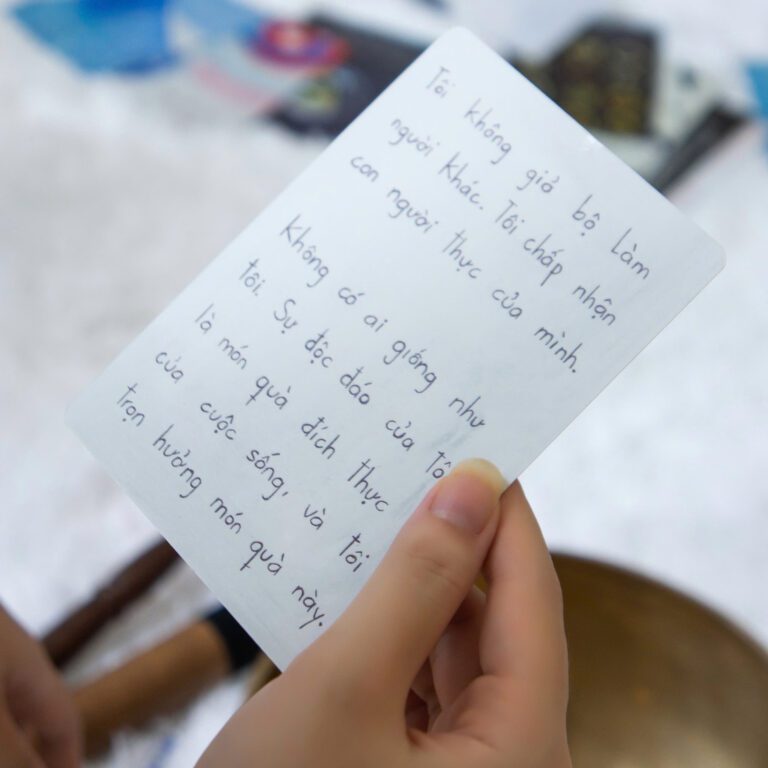 Tôi không giả bộ làm
người khác. Tôi chấp nhận
con người thực của mình.
Không có ai giống như
tôi. Sự độc đáo của tôi
là món quà đích thực
của cuộc sống, và tôi
trọn hưởng món quà này.